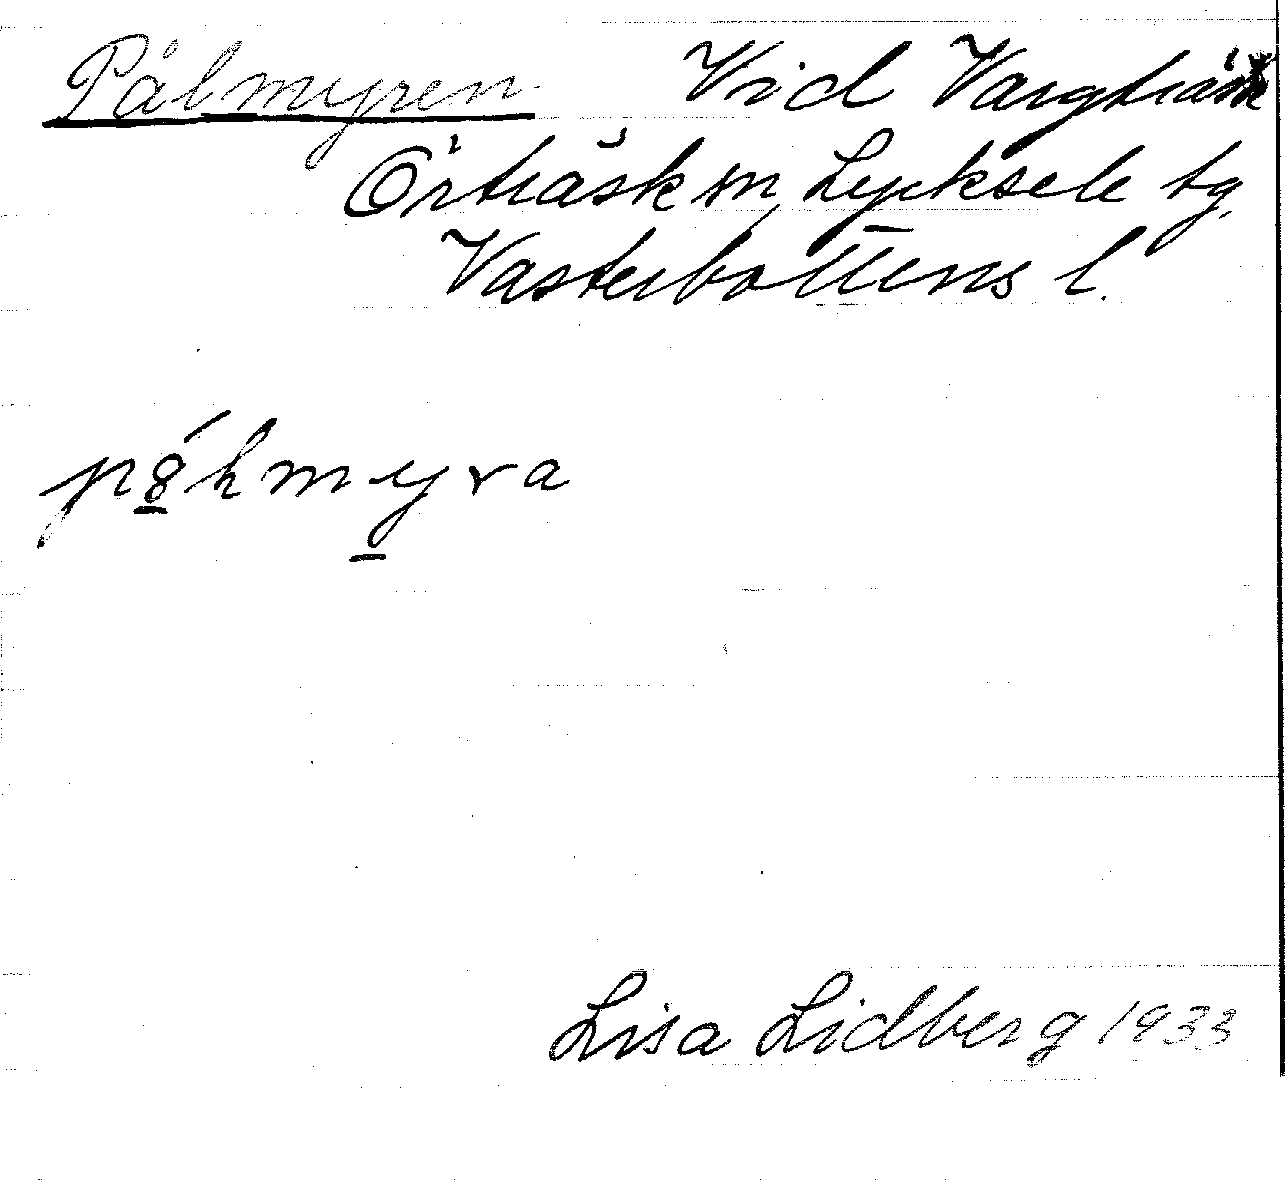 Pålmyren Vid Vargträsk
Örträsk sn, Lycksele tg.
Västerbottens l.
Lisa Lidberg 1933